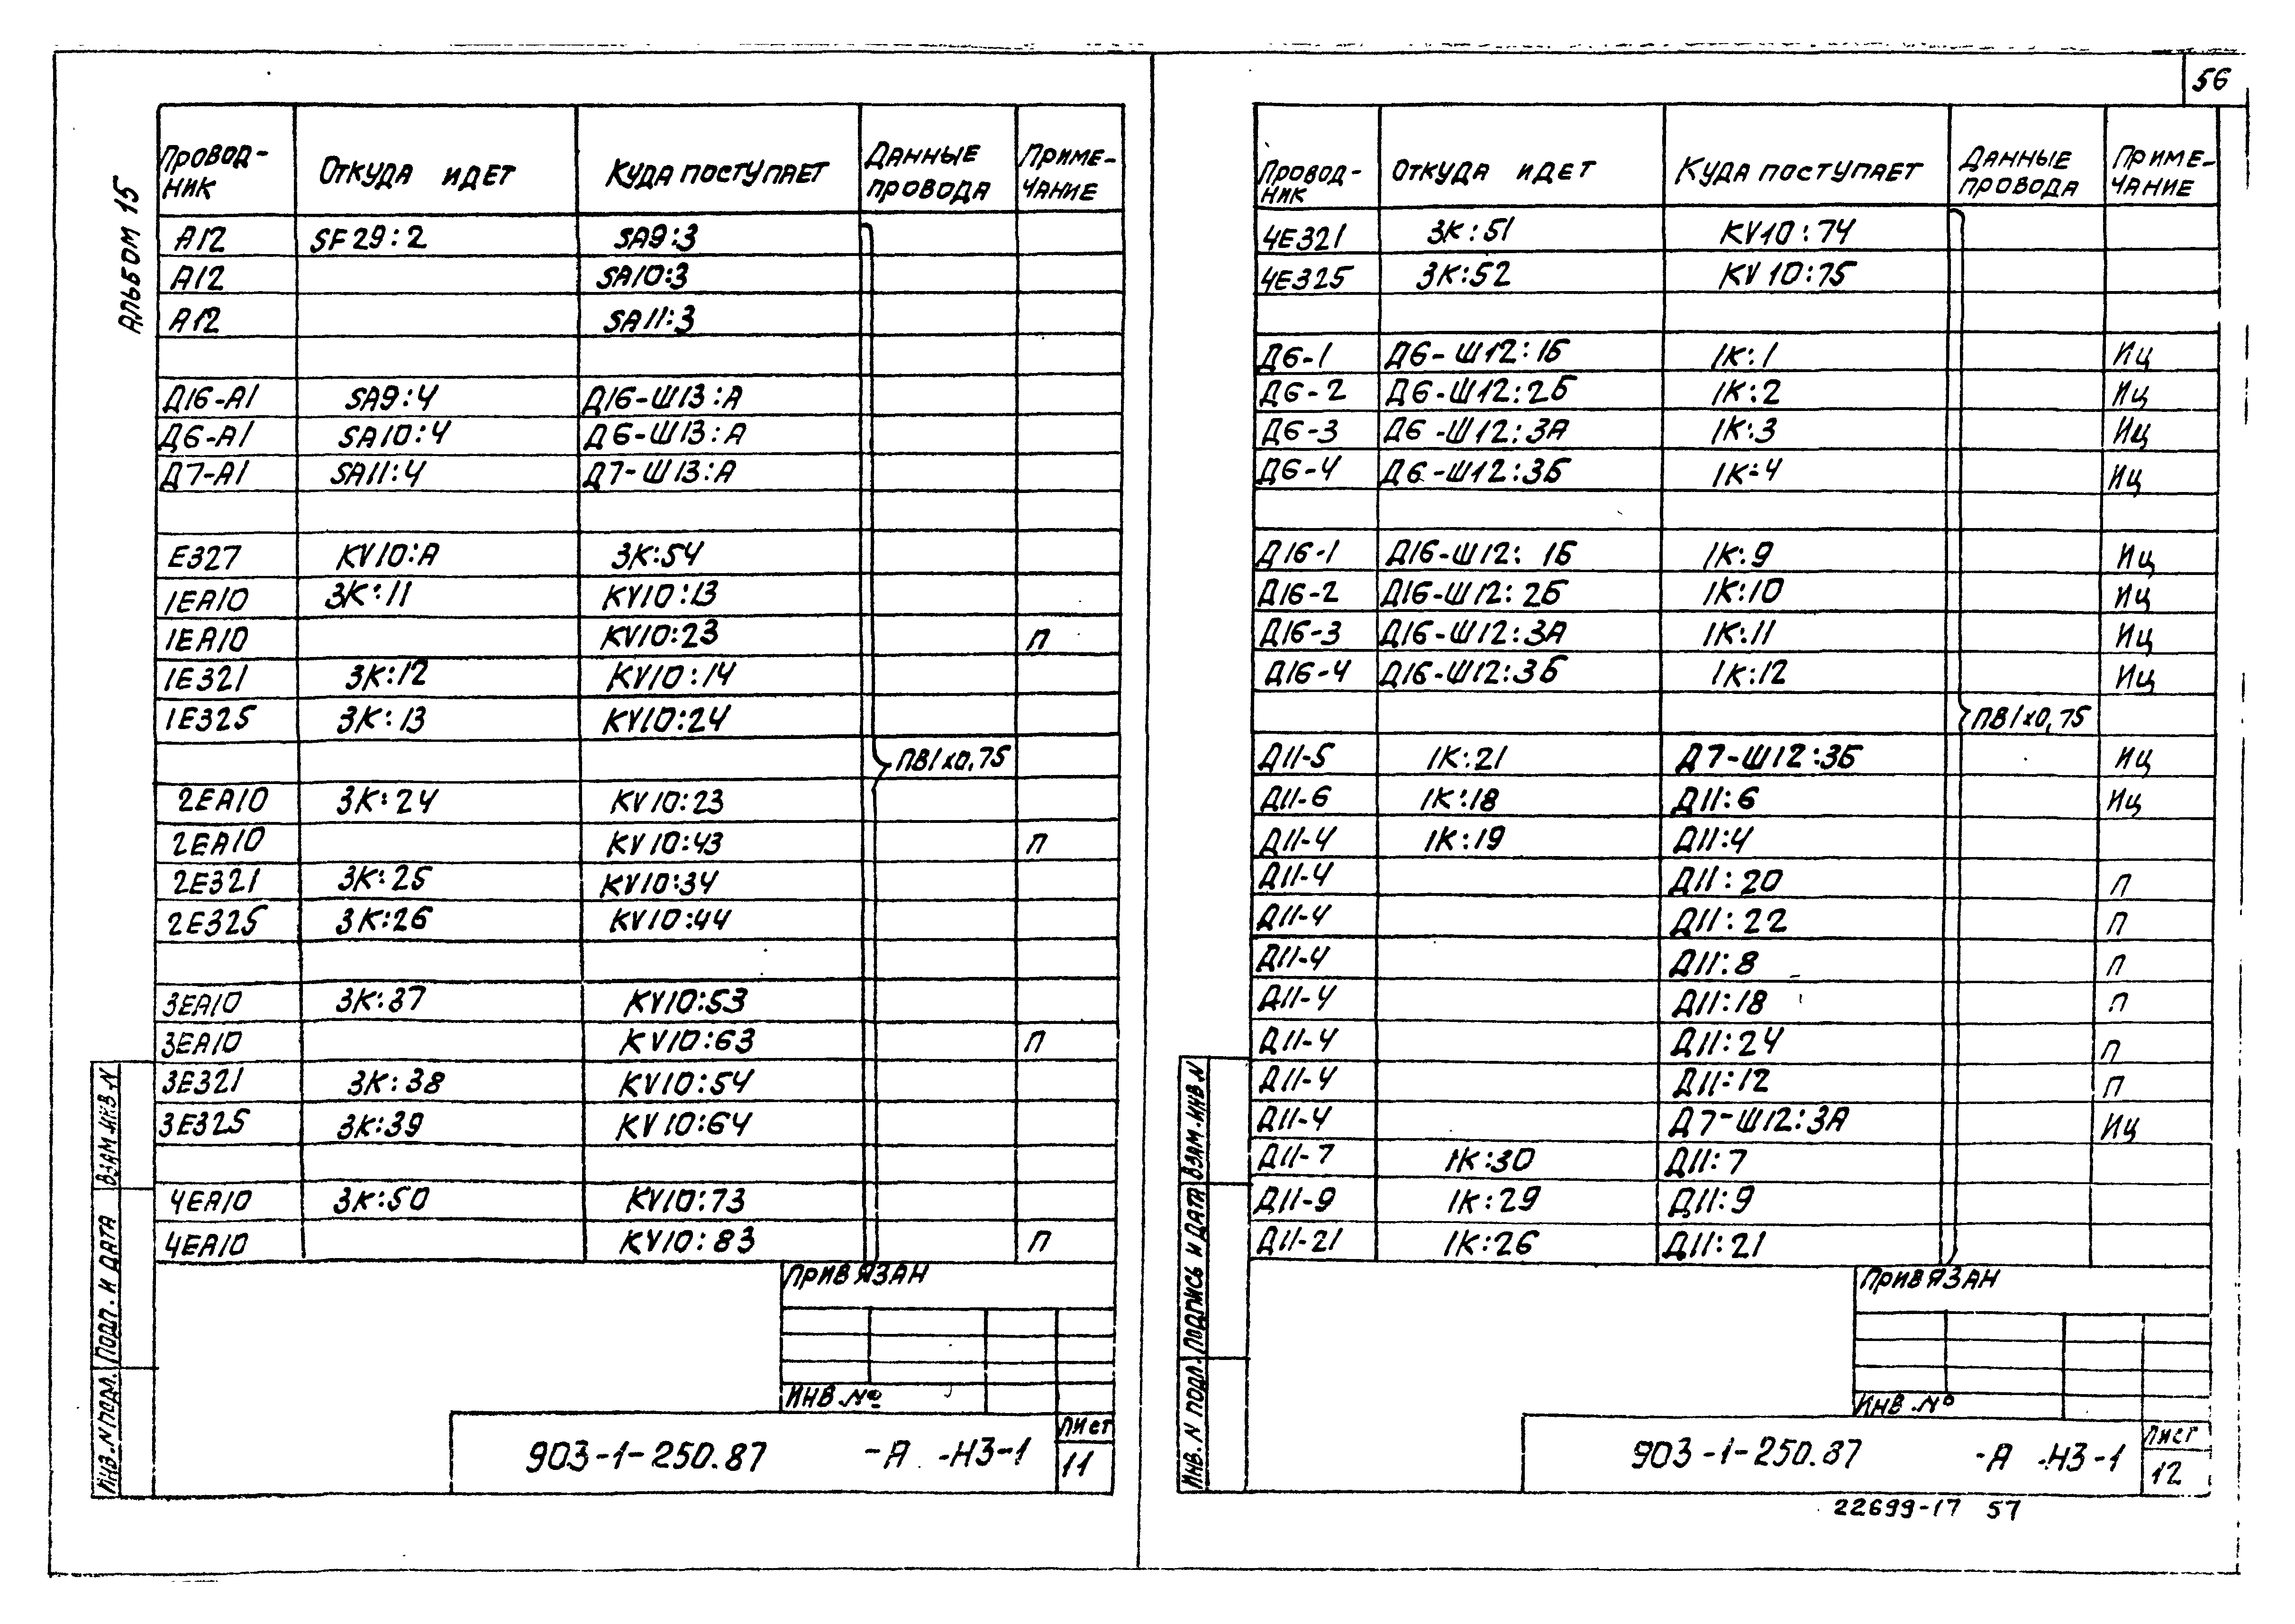 56
АЛЬБОМ 15
ПРОВОД-НИК ОТКУДА ИДЕТ КУДА ПОСТУПАЕТ ДАННЫЕ ПРОВОДА ПРИМЕ-ЧАНИЕ
А12 SF29:2 SA9:3
А12 SA10:3
А12 SA11:3
Д16-А1 SA9:4 Д16-Ш13:А
Д6-А1 SA10:4 Д6-Ш13:А
Д7-А1 SA11:4 Д7-Ш13:А
Е327 KV10:А 3К:54
1ЕА10 3К:11 KV10:13
1ЕА10 KV10:23 П
1Е321 3К:12 KV10:14
1Е325 3К:13 KV10:24
ПВ1х0,75
2ЕА10 3К:24 KV10:23
2ЕА10 KV10:43 П
2Е321 3К:25 KV10:34
2Е325 3К:26 KV10:44
3ЕА10 3К:37 KV10:53
3ЕА10 KV10:63 П
3Е321 3К:38 KV10:54
3Е325 3К:39 KV10:64
4ЕА10 3К:50 KV10:73
4ЕА10 KV10:83 П
ПРИВЯЗАН
ИНВ.№
903-1-250.87 -А -Н3-1
ЛИСТ
11
ИНВ.N ПОДЛ. ПОДП. И ДАТА ВЗАМ.ИНВ.N
ПРОВОД-НИК ОТКУДА ИДЕТ КУДА ПОСТУПАЕТ ДАННЫЕ ПРОВОДА ПРИМЕ-ЧАНИЕ
4Е321 3К:51 KV10:74
4Е325 3К:52 KV10:75
Д6-1 Д6-Ш12:1Б 1К:1 Иц
Д6-2 Д6-Ш12:2Б 1К:2 Иц
Д6-3 Д6-Ш12:3А 1К:3 Иц
Д6-4 Д6-Ш12:3Б 1К:4 Иц
Д16-1 Д16-Ш12:1Б 1К:9 Иц
Д16-2 Д16-Ш12:2Б 1К:10 Иц
Д16-3 Д16-Ш12:3А 1К:11 Иц
Д16-4 Д16-Ш12:3Б 1К:12 Иц
ПВ1х0,75
Д11-5 1К:21 Д7-Ш12:3Б Иц
Д11-6 1К:18 Д11:6 Иц
Д11-4 1К:19 Д11:4
Д11-4 Д11:20 П
Д11-4 Д11:22 П
Д11-4 Д11:8 П
Д11-4 Д11:18 П
Д11-4 Д11:24 П
Д11-4 Д11:12 П
Д11-4 Д7-Ш12:3А Иц
Д11-7 1К:30 Д11:7
Д11-9 1К:29 Д11:9
Д11-21 1К:26 Д11:21
ПРИВЯЗАН
ИНВ.№
903-1-250.87 -А -Н3-1
ЛИСТ
12
ИНВ. N ПОДЛ. ПОДПИСЬ И ДАТА ВЗАМ.ИНВ.N
22699-17 57